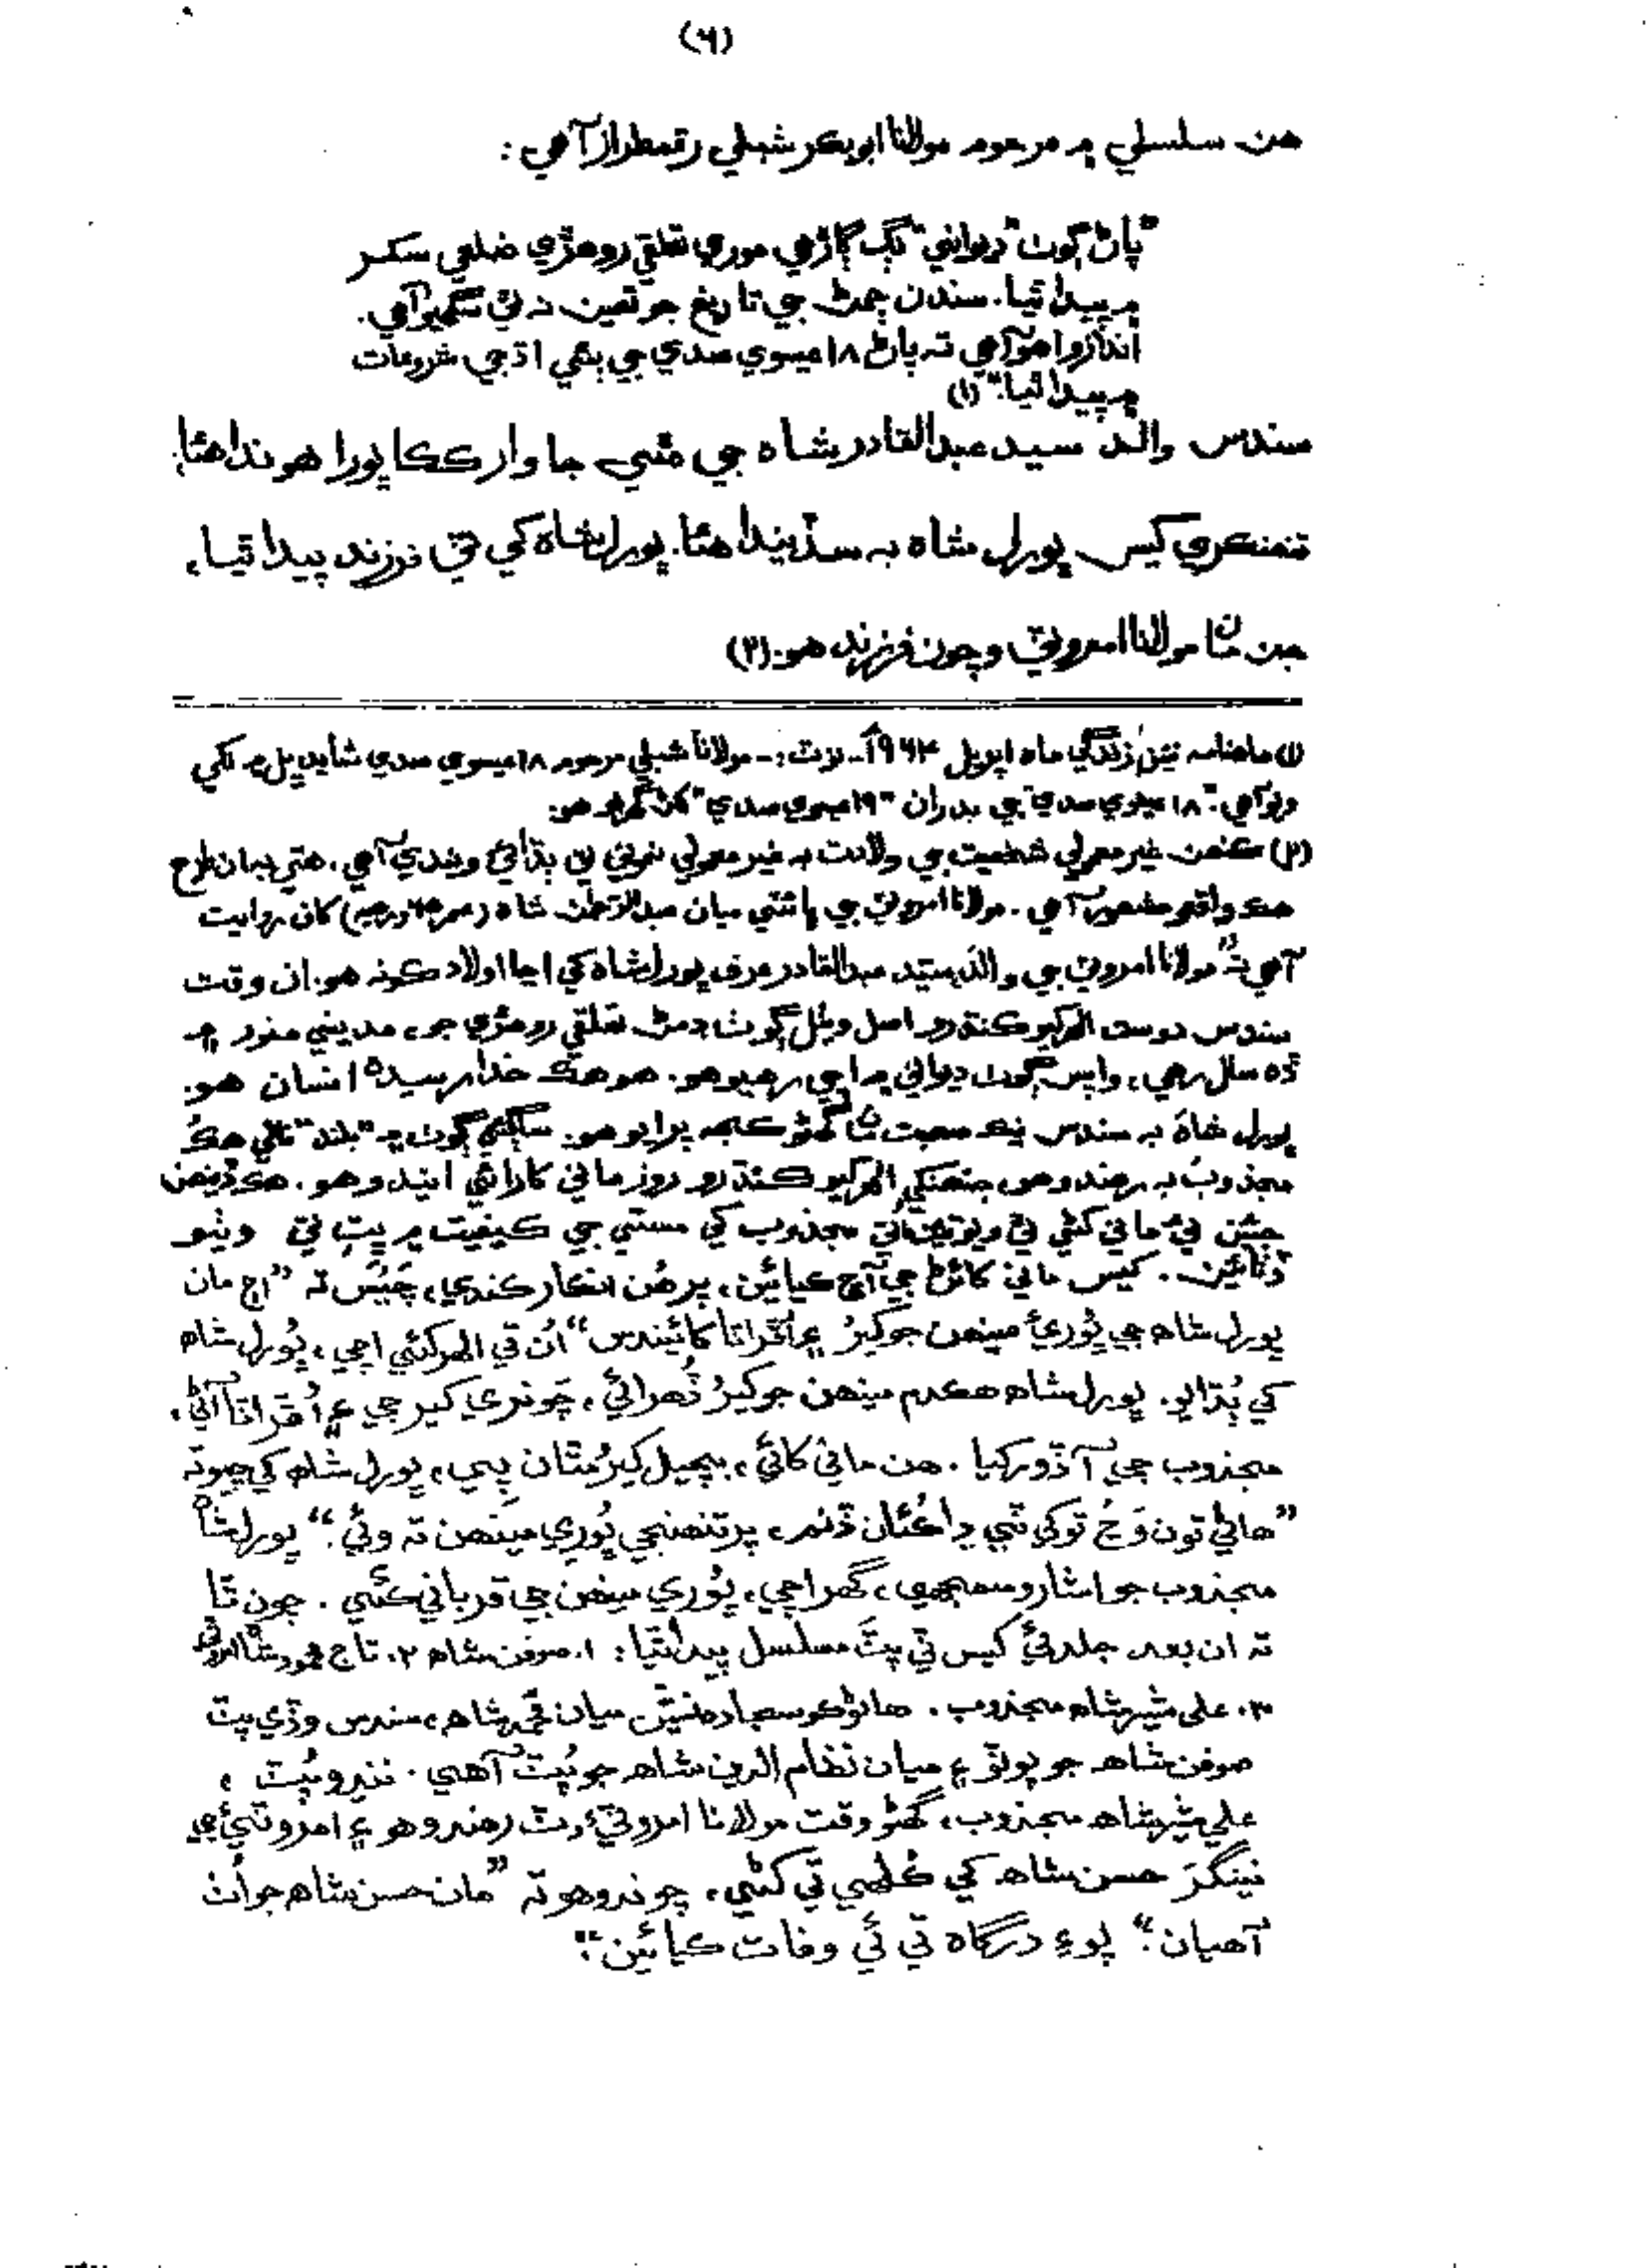 (٦)
هن سلسلي ۾ مرحوم مولانا ابوبڪر شبلي رقمطراز آهي:
"پاڻ ڳوٺ "ديواني" لڳ ڳاڙهي موري تعلقي روهڙي ضلعي سکر
۾ پيدا ٿيا. سندن ڄمڻ جي تاريخ جو تعين نه ٿي سگهيو آهي.
اندازو اهو آهي ته پاڻ ١٨ عيسوي صدي جي ٻئي اڌ جي شروعات
۾ پيدا ٿيا." (١)
سندس والد سيد عبدالقادر شاه جي مٿي جا وار ڪڪا ڀورا هوندا هئا.
تنهنڪري کيس ڀورل شاه به سڏيندا هئا. ڀورل شاه کي ٽي فرزند پيدا ٿيا،
جن مان مولانا امروٽي وچون فرزند هو. (٢)
(١) ماهنامه نئين زندگي ماه اپريل ١٩٦٤ع. نوٽ:- مولانا شبلي مرحوم ١٨ عيسوي صدي شايد ڀل ۾ لکي
ويو آهي. "١٨ عيسوي صدي" جي بدران "١٩ عيسوي صدي" لکڻ گهربو هو.
(٢) ڪنهن غير معمولي شخصيت جي ولادت به غير معمولي نموني ئي ٻڌائي ويندي آهي. هتي به ان طرح
هڪ واقعو مشهور آهي. مولانا امروٽي جي ڀائٽي ميان عبدالرحمٰن شاه کان روايت
آهي ته "مولانا امروٽي جي والد سيد عبدالقادر عرف ڀورل شاه کي اڃا اولاد ڪونه هو. ان وقت
سندس دوست الهرکيو ڪنڌرو اصل ويٺل ڳوٺ تعلقي روهڙي جو، مديني منور ۾
ڏه سال رهي، واپس ڳوٺ ديواني ۾ اچي رهيو هو. هو هڪ خدا رسيده انسان هو.
ڀورل شاه به سندس نيڪ صحبت مان گهڻو ڪجهه پرايو هو. ساڳئي ڳوٺ ۾ "بلند" نالي هڪ
مجذوب به رهندو هو، جنهنکي الهرکيو ڪنڌرو روز ماني کارائي ايندو هو. هڪ ڏينهن
جئن ئي ماني کڻي ٿي ويو تيئن ئي مجذوب کي مستي جي ڪيفيت ۾ ڀت تي ويٺو
ڏٺائين. کيس ماني کائڻ جي آڇ ڪيائين، پر هُن انڪار ڪندي، چَيُس ته "اڄ مان
ڀورل شاه جي ڀُوريءَ مينهن جو کيرُ ۽ اُڦراٽا کائيندس" اُن تي الهرکئي اچي، ڀُورل شاه
کي ٻُڌايو. ڀورل شاه هڪدم مينهن جو کيرُ ڏُهرائي، چونري کير جي ۽ اُڦراٽا آڻي،
مجذوب جي آڏو رکيا. هن ماني کائي، بچيل کيرُ مٿان پيي، ڀورل شاه کي چيو ته
"هاڻي تون وَڃُ توکي ٽي ڍاڪُئان ڏنم، پر تنهنجي ڀُوري مينهن ته وئي." ڀورل شاه
مجذوب جو اشارو سمجهي، گهر اچي، ڀُوري مينهن جي قرباني ڪئي. چون ٿا
ته ان بعد جلدئي کيس ٽي پٽَ مسلسل پيدا ٿيا: ١. صوفن شاه ٢. تاج محمود شاه امروٽي
٣. علي شير شاه مجذوب. هاڻوڪو سجاده نشين ميان محمد شاه، سندس وڏي پٽ
صوفن شاهه جو پوٽو ۽ ميان نظام الدين شاهه جو پُٽ آهي. ننڍو پُٽ،
علي شير شاهه مجذوب، گهڻو وقت مولانا امروٽيءَ وٽ رهندو هو ۽ امروٽيءَ جي
نينگرَ حسن شاهه کي ڪُلهي تي کڻي، چوندو هو ته "مان حسن شاهه جو اُٺ
آهيان." پوءِ درگاه تي ئي وفات ڪيائين."